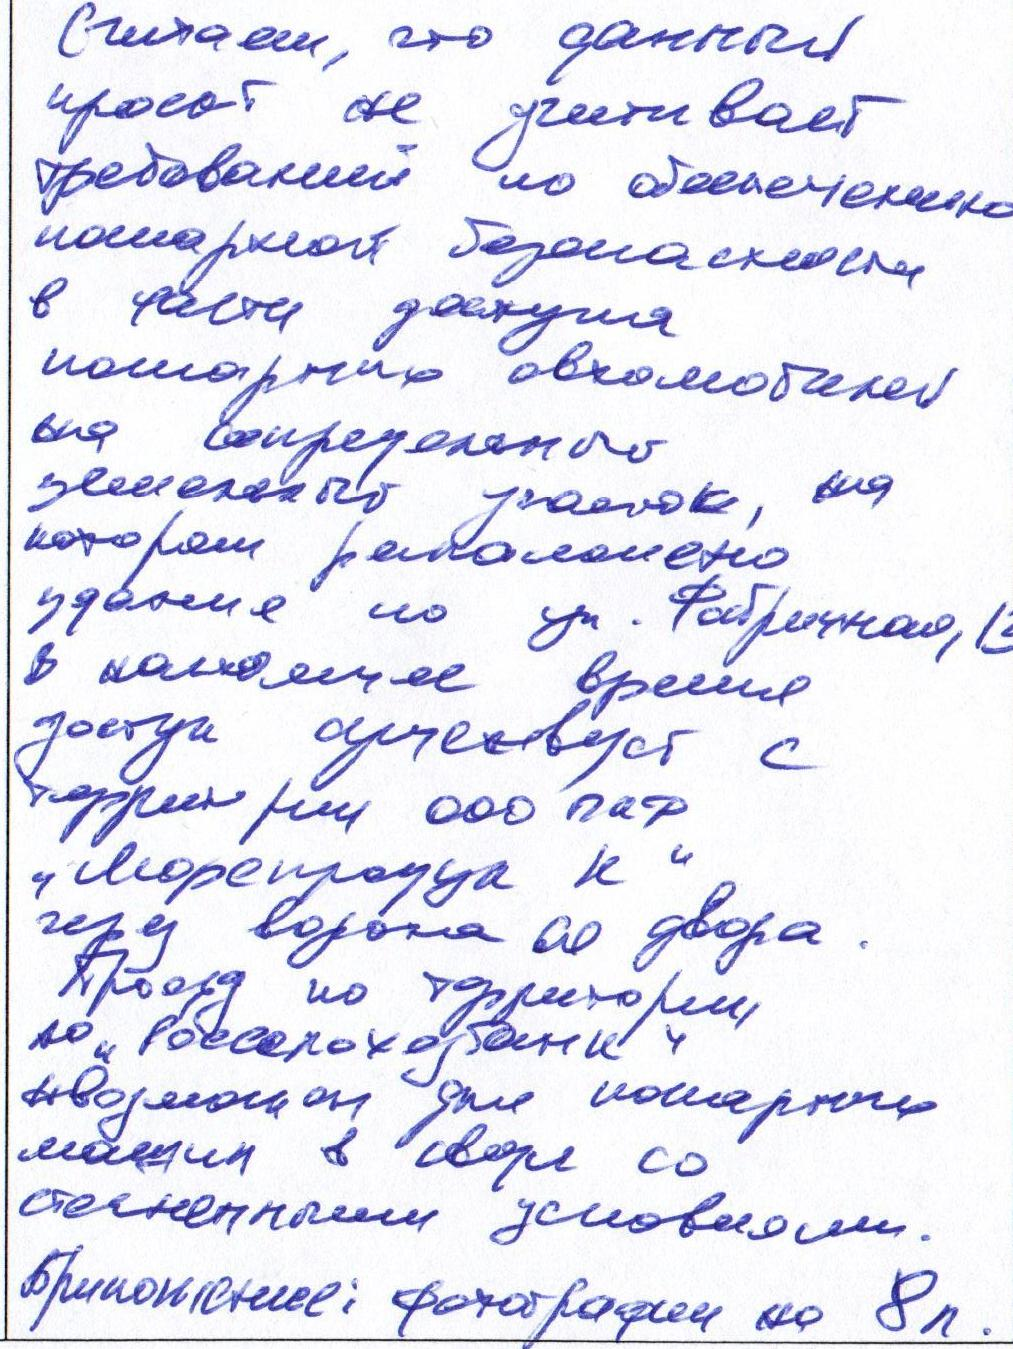 Считаем, что данный
проект не учитывает
требований по обеспечению
пожарной безопасности
в части доступа
пожарных автомобилей
на сопредельный
земельный участок, на
котором расположено
здание по ул. Фабричная,
в настоящее время
доступ существует с
территории ООО ПКФ
"Морепродукт К"
через ворота со двора.
Проезд по территории
АО "Россельхозбанк"
невозможен для пожарных
машин в связи со
стесненными условиями.
Приложение: фотографии на 8 л.